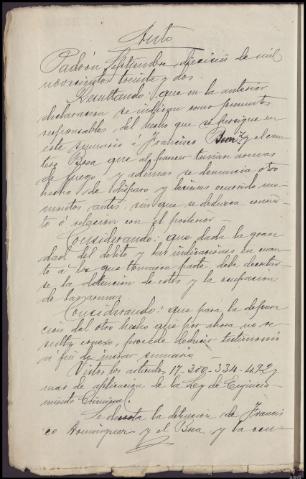 Auto
Padrón Septiembre dieciseis de mil
novecientos treinta y dos.
Resultando: que en la anterior
declaración se indican como presuntos
responsables del hecho que se persigue en
este sumario a Francisco y el
Boa que
de fuego, y además se denuncia otro
hecho de disparo y lesiones
mentos antes, sin que se deduzca
o relación con el posterior.
Considerando: que dada la grave
dad del delito y las indicaciones en cuan
to a los que tomaron parte, debe decretar
se la detención de estos y la ocupación
de las armas.
Considerando: que para la
ción del otro hecho que por ahora no re
sulta conexo, procede deducir testimonio
a fin de sumario.
Vistos los artículos 17-300-334-492 y
mas de aplicación de la Ley de Enjuicia
miento Criminal.
Se decreta la detención de Francis
co Dominguez y el Boa y la